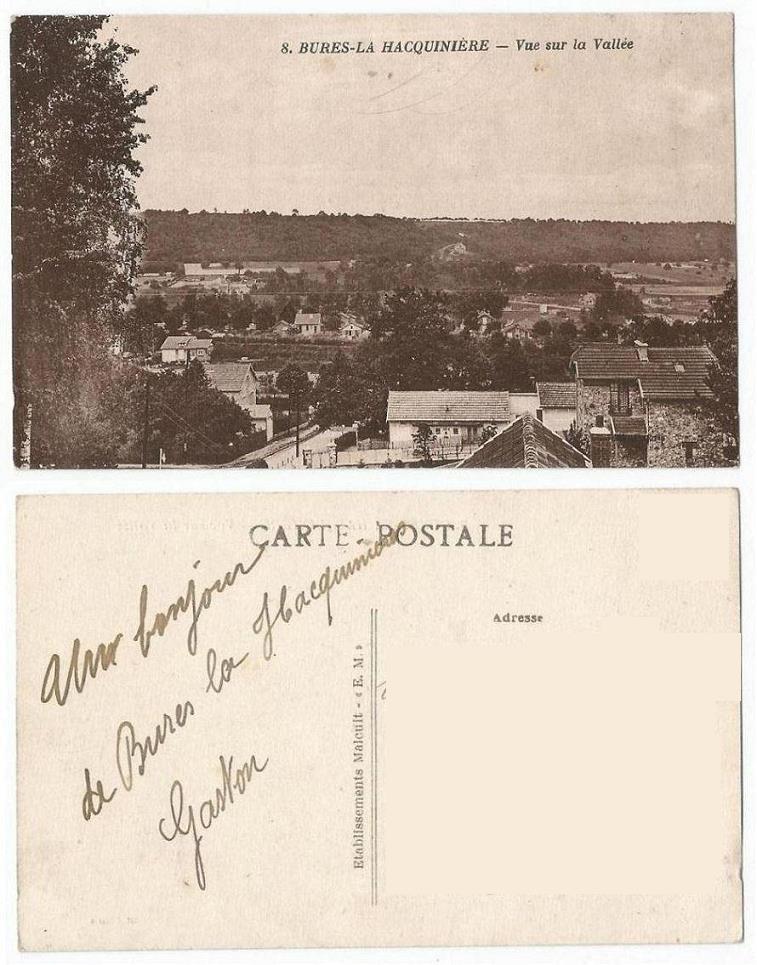 8. BURES-LA HACQUINIÈRE — Vue sur la Vallée
CARTE POSTALE
Adresse
Un bonjour
de Bures la Hacquinière
Gaston
Etablissements Malcuit - « E. M. »